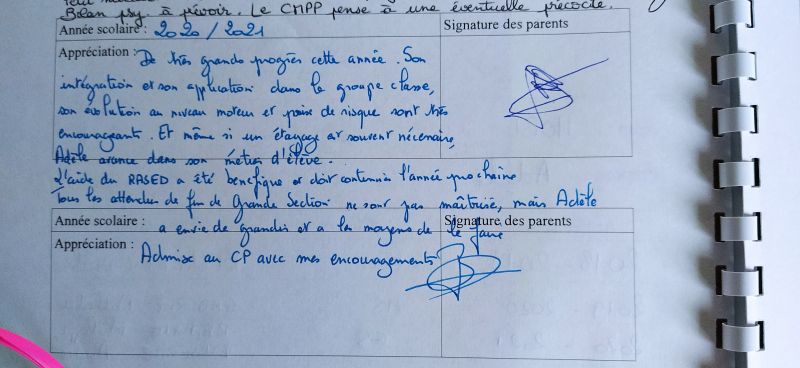 Bilan psy à prévoir. Le CMPP pense à une éventuelle précocité.
Année scolaire : 2020 / 2021
Signature des parents
Appréciation : De très grands progrès cette année. Son
intégration et son application dans le groupe classe,
son évolution au niveau moteur et prise de risque sont très
encourageant. Et même si un étayage est souvent nécessaire,
Adèle avance dans son métier d'élève.
L'aide du RASED a été bénéfique et doit continuer l'année prochaine
Tous les attendus de fin de Grande Section ne sont pas maîtrisé, mais Adèle
Année scolaire :
Signature des parents
a envie de grandir et a les moyens de le faire
Appréciation :
Admise au CP avec mes encouragements